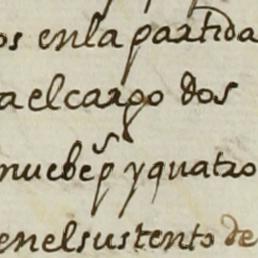 os enla partida
a el cargo dos
nuebe ps y quatro
en el sustento de